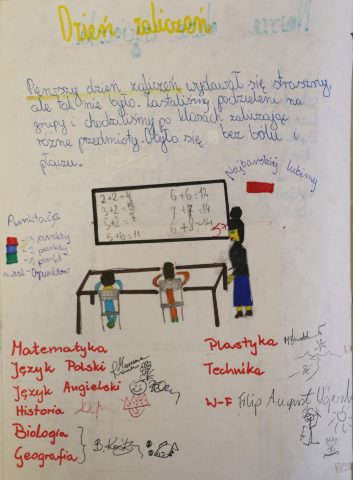 Dzień zaliczeń
Pierwszy dzień zaliczeń wydawał się straszny,
ale tak nie było. Zostaliśmy podzieleni na
grupy i chodziliśmy po klasach zaliczając
różne przedmioty. Było się bez bólu i
płaczu.
Najbardziej lubimy
Punktacja
- 3 punkty
- 2 punkty
- 1 punkt
2+2=4
3+2=
5+2=7
5+6=11
6+6=12
7+7=14
6+8=14
Matematyka
Język Polski
Język Angielski
Historia
Biologia
Geografia
B.
Plastyka
Technika
W-F Filip August